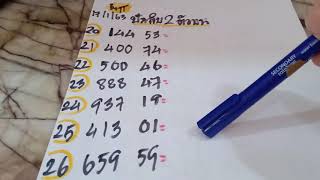 17/1/63
20 144 53=
21 400 74=
22 500 46=
23 888 47=
24 937 19=
25 413 01=
26 659 59=